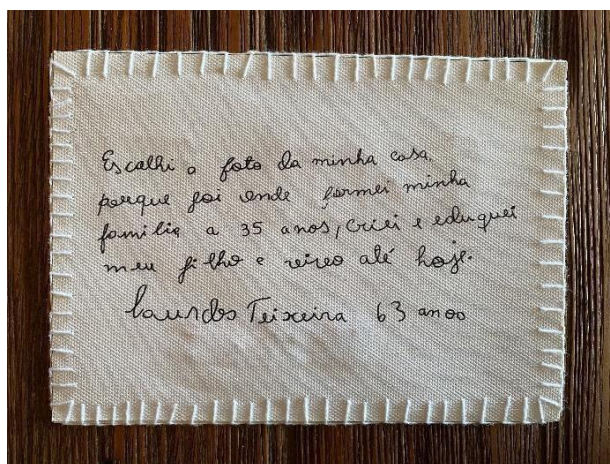 Escolhi a foto da minha casa.
porque foi onde formei minha
familia a 35 anos, criei e eduquei
meu filho e vivo até hoje.
Lourdes Teixeira 63 anos